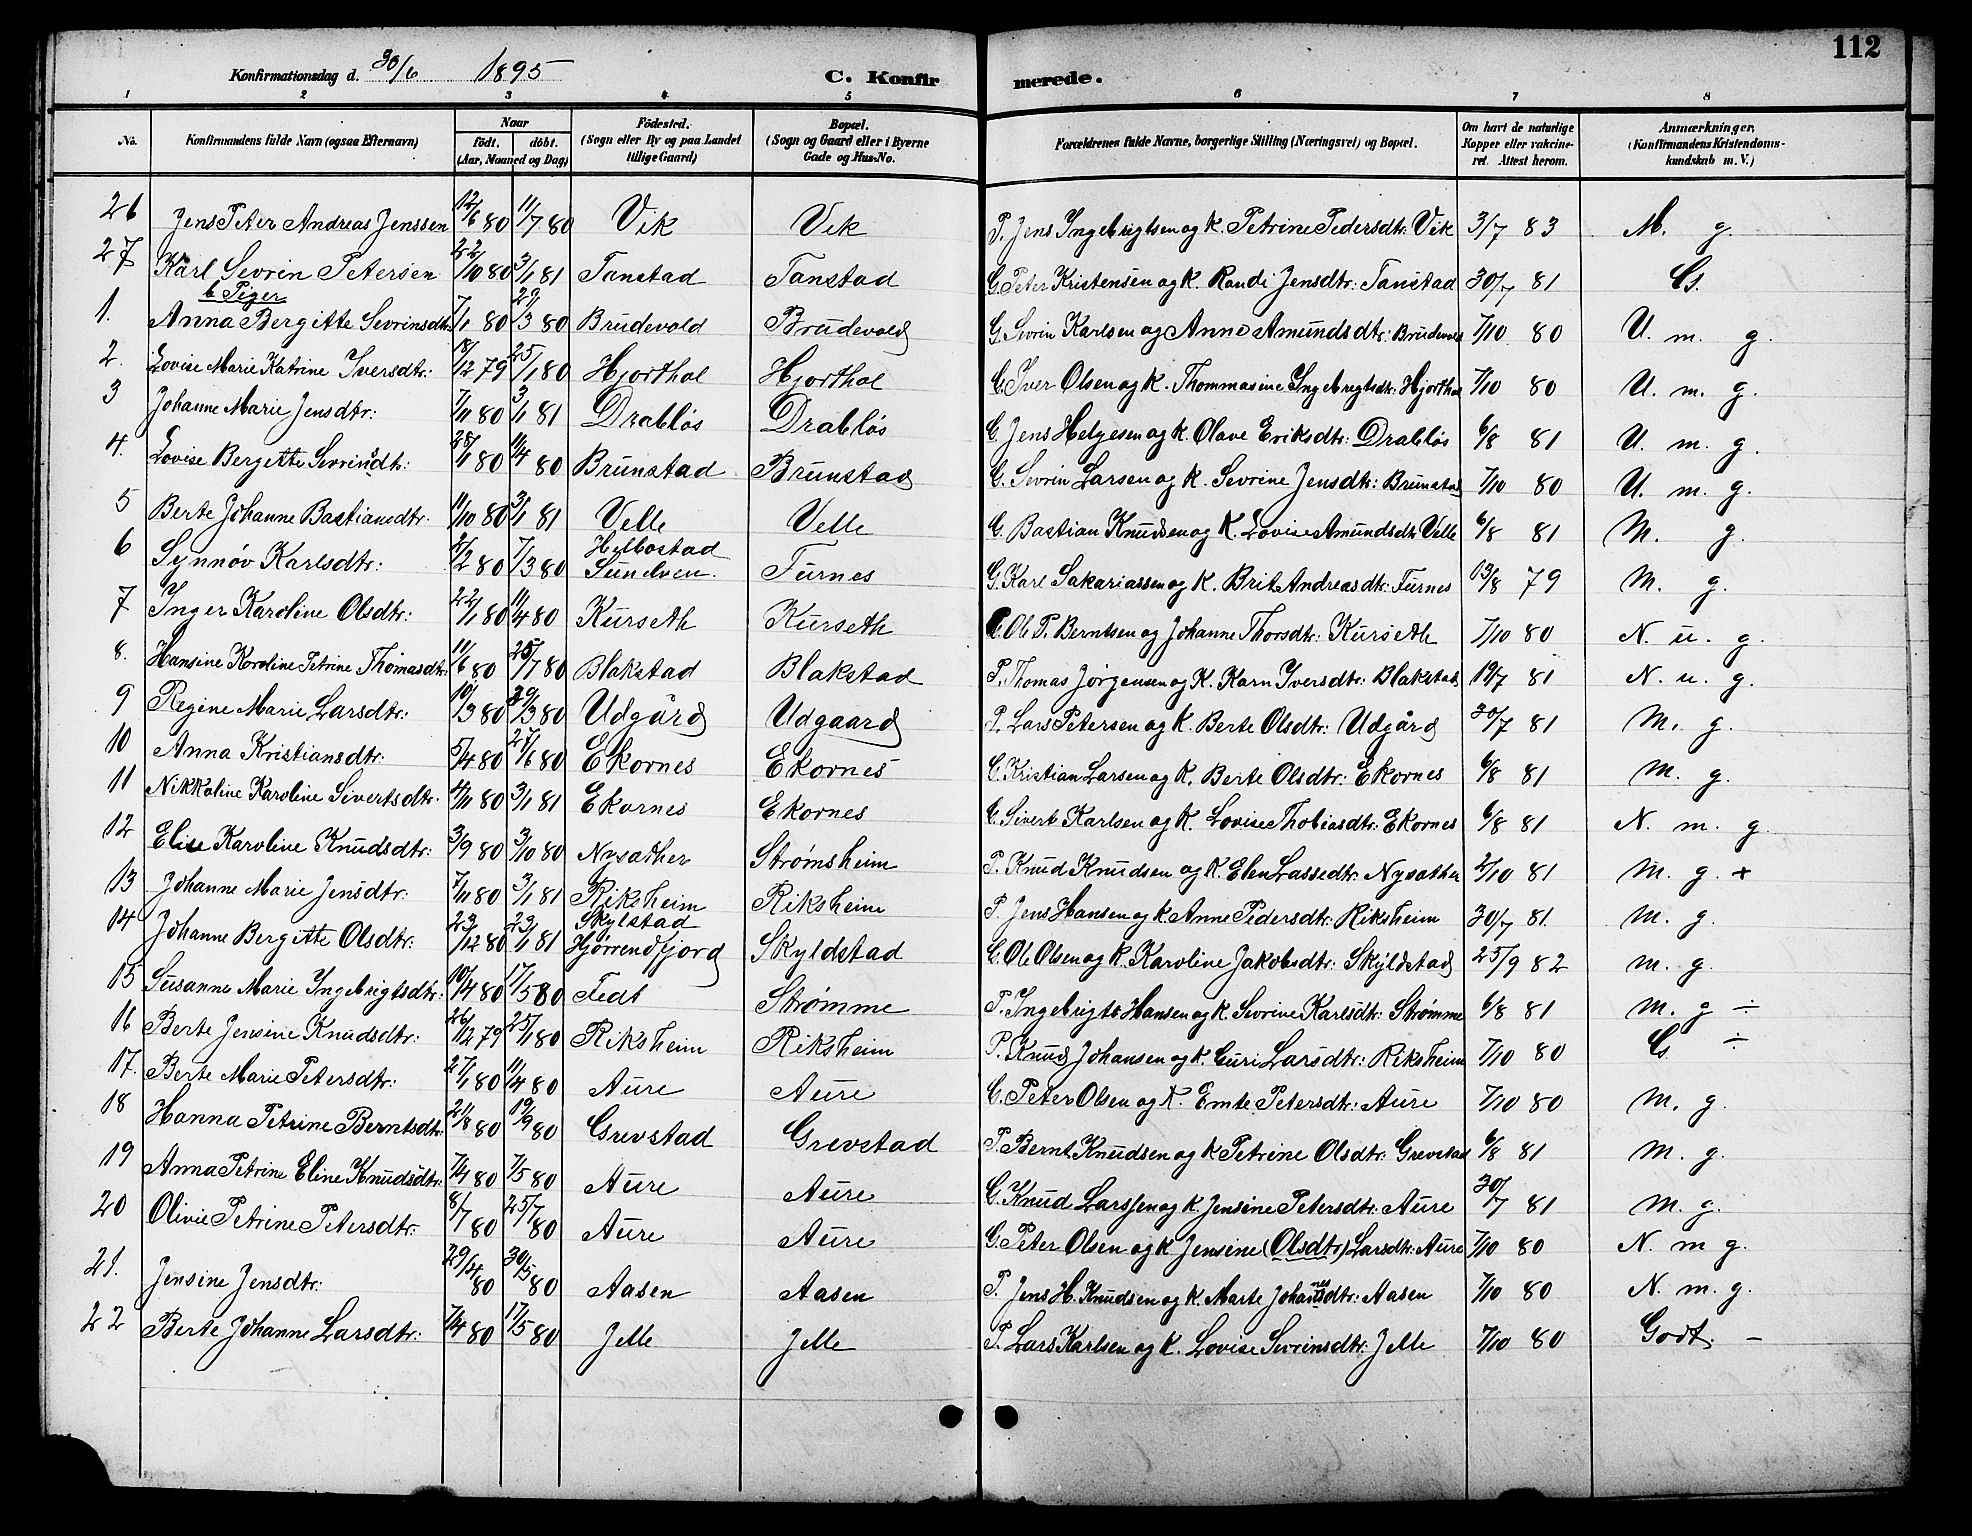 112
Konfirmationsdag d. 30/6 1895 C. Konfirmerede.
1 2 3 4 5 6 7 8
No. Konfirmandens fulde Navn (ogsaa Efternavn) Naar født. døbt. (Aar, Maaned og Dag) Fødested. (Sogn eller By og paa Landet tillige Gaard) Bopæl. (Sogn og Gaard eller i Byerne Gade og Hus-No. Forældrenes fulde Navne, borgerlige Stilling (Næringsvei) og Bopæl. Om havt de naturlige Kopper eller vakcineret. Attest herom. Anmærkninger, (Konfirmandens Kristendomskundskab m. V.)
26 Jens Peter Andreas Jenssen 12/6 80 11/7 80 Vik Vik P. Jens Ingebrigtsen og K. Petrine Pedersdtr: Vik 3/7 83 M. g.
27 Karl Sevrin Petersen 22/10 80 3/1 81 Tanstad Tanstad G. Peter Kristensen og K. Randi Jensdtr: Tanstad 30/7 81 G.
b Piger
1. Anna Bergitte Sevrinsdtr 7/1 80 29/3 80 Brudevold Brudevold G. Sevrin Karlsen og Anne Amundsdtr: Brudevold 7/10 80 U. m. g.
2. Lovise Marie Katrine Iversdtr: 18/12 79 25/1 80 Hjorthol Hjorthol G. Iver Olsen og K. Thommasine Ingebrigtsdtr: Hjorthol 7/10 80 U. m. g.
3 Johanne Marie Jensdtr: 7/11 80 3/1 81 Drabløs Drabløs G. Jens Helgesen og K. Olave Eriksdtr: Drabløs 6/8 81 U. m. g.
4. Lovise Bergette Sevrinsdtr: 28/1 80 11/4 80 Brunstad Brunstad G. Sevrin Larsen og K. Sevrine Jensdtr: Brunstad 7/10 80 U. m. g.
5 Berte Johanne Bastiansdtr. 11/10 80 3/1 81 Velle Velle G. Bastian Knudsen og K. Lovise Amundsdtr Velle 6/8 81 M. g.
6 Synnøv Karlsdtr: 4/2 80 7/3 80 Helbostad Sunelven. Furnes G. Karl Sakariassen og K. Brit Andreasdtr: Furnes 13/8 79 M. g.
7 Inger Karoline Olsdtr: 22/1 80 11/4 80 Kurseth Kurseth G. Ole P. Berntsen og Johanne Thorsdtr: Kurseth 7/10 80 N. u. g.
8. Hansine Karoline Petrine Thomasdtr: 11/6 80 25/7 80 Blakstad Blakstad P. Thomas Jørgensen og K. Karn Iversdtr: Blakstad 19/7 81 N. u. g.
9 Regine Marie Larsdtr: 10/3 80 29/3 80 Udgård Udgaard P. Lars Petersen og K. Berte Olsdtr: Udgård 30/7 81 M. g.
10 Anna Kristiansdtr: 5/4 80 27/6 80 Ekornes Ekornes G. Kristian Larsen og K. Berte Olsdtr: Ekornes 6/8 81 M. g.
11 Nikkoline Karoline Sivertsdtr. 4/11 80 3/1 81 Ekornes Ekornes G. Sivert Karlsen og K. Lovise Thobiasdtr: Ekornes 6/8 81 N. m. g.
12 Elise Karoline Knudsdtr: 3/9 80 3/10 80 Nysæther Strømsheim P. Knud Knudsen og K. Elen Lassedtr: Nysæther 2/10 81 M. g. +
13 Johanne Marie Jensdtr: 7/11 80 3/1 81 Riksheim Riksheim P. Jens Hansen og K. Anne Pedersdtr: Riksheim 30/7 81. M. g.
14 Johanne Bergitte Olsdtr: 23/12 80 23/1 81 Skylstad Hjørrendfjord Skyldstad G. Ole Olsen og K. Karoline Jakobsdtr: Skyldstad 25/9 82 M. g.
15 Susanne Marie Ingebrigtsdtr: 10/4 80 17/5 80 Fedt Strømme P. Ingebrigt Hansen og K. Sevrine Karlsdtr: Strømme 6/8 81 M. g ÷
16 Berte Jensine Knudsdtr: 26/12 79 25/1 80 Riksheim Riksheim P. Knud Johansen og K. Guri Larsdtr: Riksheim 7/10 80 G. ÷
17. Berte Marie Petersdtr: 27/1 80 11/4 80 Aure Aure G. Peter Olsen og K. Emte Petersdtr: Aure 7/10 80 M. g.
18 Hanna Petrine Berntsdtr: 21/8 80 19/9 80 Grevstad Grevstad P. Bernt Knudsen og K Petrine Olsdtr: Grevstad 6/8 81 M. g.
19 Anna Petrine Eline Knudsdtr: 7/4 80 7/5 80 Aure Aure G. Knud Larssen og K. Jensine Petersdtr: Aure 30/7 81 M. g.
20 Olivie Petrine Petersdtr: 8/7 80 25/7 80 Aure Aure G. Peter Olsen og K Jensine (Olsdtr) Larsdtr: Aure 7/10 80 N. m g.
21. Jensine Jensdtr: 29/4 80 30/5 80 Aasen Aasen P. Jens H. Knudsen og K. Marte Johannesdtr: Aasen 7/10 80 N. m. g.
22 Berte Johanne Larsdtr: 7/4 80 17/5 80 Jelle Jelle P. Lars Karlsen og K. Lovise Sevrinsdtr: Jelle 7/10 80 Godt. –